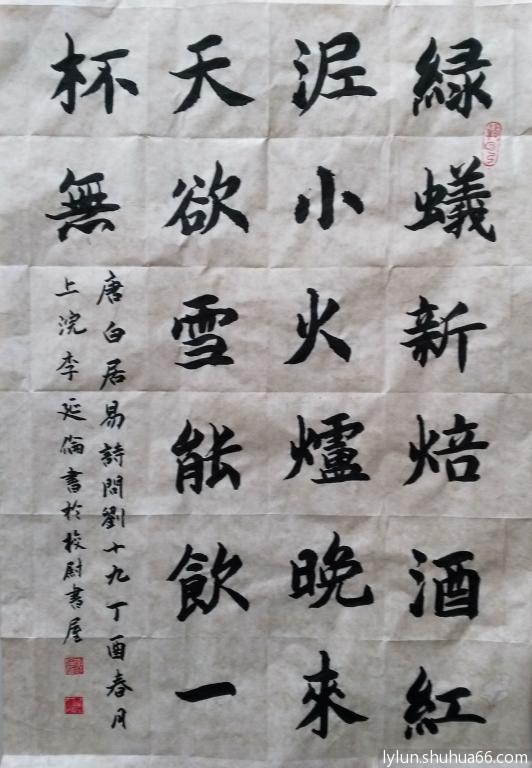 緑蟻新焙酒紅
泥小火爐晚來
天欲雪能飲一
杯無
唐白居易詩問劉十九丁酉春月
上浣李延倫書於校尉書屋
lylun.shuhua66.com